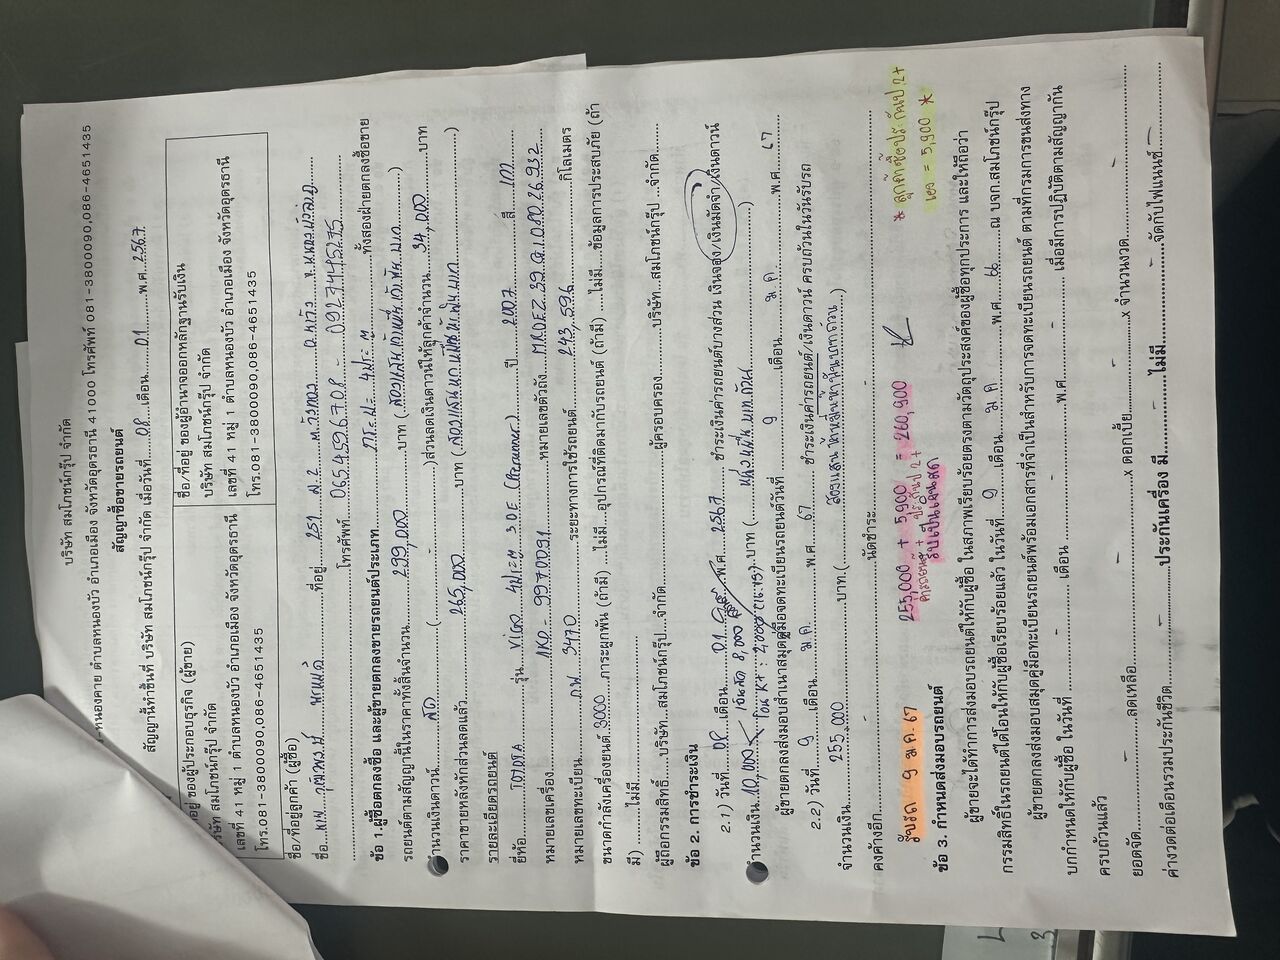 บริษัท สมโภชน์กรุ๊ป จำกัด
หนองคาย ตำบลหนองบัว อำเภอเมือง จังหวัดอุดรธานี 41000 โทรศัพท์ 081-3800090,086-4651435
สัญญาซื้อขายรถยนต์
สัญญานี้ทำขึ้นที่ บริษัท สมโภชน์กรุ๊ป จำกัด เมื่อวันที่ 08 เดือน 01 พ.ศ. 2567
ที่อยู่ ของผู้ประกอบธุรกิจ (ผู้ขาย)
บริษัท สมโภชน์กรุ๊ป จำกัด
เลขที่ 41 หมู่ 1 ตำบลหนองบัว อำเภอเมือง จังหวัดอุดรธานี
โทร.081-3800090,086-4651435
ชื่อ/ที่อยู่ ของผู้อำนาจออกหลักฐานรับเงิน
บริษัท สมโภชน์กรุ๊ป จำกัด
เลขที่ 41 หมู่ 1 ตำบลหนองบัว อำเภอเมือง จังหวัดอุดรธานี
โทร.081-3800090,086-4651435
ชื่อ/ที่อยู่ลูกค้า (ผู้ซื้อ)
ชื่อ ที่อยู่ 251 ม.2
โทรศัพท์ 0654596708 - 0927445275
ข้อ 1.ผู้ซื้อตกลงซื้อ และผู้ขายตกลงขายรถยนต์ประเภท กระบะ 4ประตู ทั้งสองฝ่ายตกลงซื้อขาย
รถยนต์ตามสัญญานี้ในราคาทั้งสิ้นจำนวน 299,000 บาท (สองแสนเก้าหมื่นเก้าพันบาท)
จำนวนเงินดาวน์ สด (-)ส่วนลดเงินดาวน์ให้ลูกค้าจำนวน 34,000 บาท
ราคาขายหลังหักส่วนลดแล้ว 265,000 บาท (สองแสนหกหมื่นห้าพันบาท)
รายละเอียดรถยนต์
ยี่ห้อ TOYOTA รุ่น VIGO 4ประตู 3.0E (Prerunner) ปี 2007 สี เทา
หมายเลขเครื่อง 1KD-9970091 หมายเลขตัวถัง
หมายเลขทะเบียน 3470 ระยะทางการใช้รถยนต์ 243,596 กิโลเมตร
ขนาดกำลังเครื่องยนต์ 3000 ภาระผูกพัน (ถ้ามี) ...ไม่มี....อุปกรณ์ที่ติดมากับรถยนต์ (ถ้ามี) ...ไม่มี....ข้อมูลการประสบภัย (ถ้า
มี) ........ไม่มี........
ผู้ถือกรรมสิทธิ์......บริษัท..สมโภชน์กรุ๊ป...จำกัด......ผู้ครอบครอง......บริษัท...สมโภชน์กรุ๊ป ..จำกัด......
ข้อ 2. การชำระเงิน
2.1) วันที่ 08 เดือน 01 พ.ศ. 2567 ชำระเงินค่ารถยนต์บางส่วน เงินจอง/เงินมัดจำ/เงินดาวน์
เงินสด 8,000
จำนวนเงิน 10,000 โอน KT : 2,000 บาท (หนึ่งหมื่นบาทถ้วน)
ผู้ขายตกลงส่งมอบสำเนาสมุดคู่มือจดทะเบียนรถยนต์วันที่ 9 เดือน ม.ค. พ.ศ. 67
2.2) วันที่ 9 เดือน ม.ค. พ.ศ 67 ชำระเงินค่ารถยนต์/เงินดาวน์ ครบถ้วนในวันรับรถ
จำนวนเงิน 255,000 บาท (สองแสนห้าหมื่นห้าพันบาทถ้วน)
คงค้างอีก - นัดชำระ -
รับรถ 9 ม.ค. 67 255,000 + 5,900 = 260,900 * ลูกค้าซื้อประกันป 2+
ค่ารถยนต์ + ประกันป 2+ เอง = 5,900 *
รับเป็นเงินสด
ข้อ 3. กำหนดส่งมอบรถยนต์
ผู้ขายจะได้ทำการส่งมอบรถยนต์ให้กับผู้ซื้อ ในสภาพเรียบร้อยตรงตามวัตถุประสงค์ของผู้ซื้อทุกประการ และให้ถือว่า
กรรมสิทธิ์ในรถยนต์ได้โอนให้กับผู้ซื้อเรียบร้อยแล้ว ในวันที่ 9 เดือน ม.ค พ.ศ. 66 ณ บจก.สมโภชน์กรุ๊ป
ผู้ขายตกลงส่งมอบสมุดคู่มือทะเบียนรถยนต์พร้อมเอกสารที่จำเป็นสำหรับการจดทะเบียนรถยนต์ ตามที่กรมการขนส่งทาง
บกกำหนดให้กับผู้ซื้อ ในวันที่ - เดือน - พ.ศ - เมื่อมีการปฏิบัติตามสัญญากัน
ครบถ้วนแล้ว
ยอดจัด - ลดเหลือ - x ดอกเบี้ย - x จำนวนงวด -
ค่างวดต่อเดือนรวมประกันชีวิต - ประกันเครื่อง มี - ไม่มี - จัดกับไฟแนนซ์ -